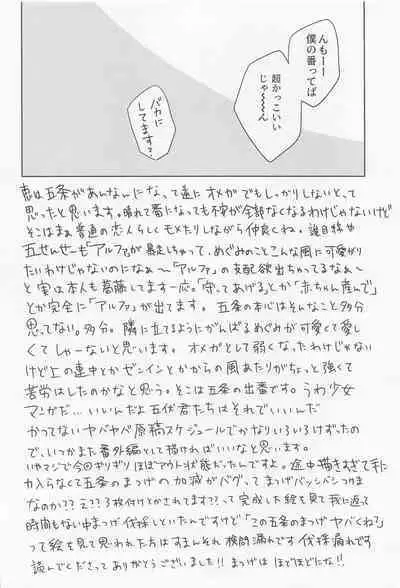 んもーー
僕の番ってば
超かっこいい
じゃ〜〜〜ん
バカに
してます?
恵は五条があんなんになって逆に オメガ でもしっかりしないとって
思ったと思います。晴れて番になっても不安が全部なくなるわけじゃないけど
そこはまぁ普通の恋人らしくモメたりしながら仲良くね。
五せんせーも「アルファが暴走しちゃって、めぐみのことこんな風に可愛がり
たいわけじゃないのになぁ〜「アルファ」の支配欲出ちゃってるなぁ〜
と実は本人も葛藤してます一応。「守ってあげる」とか「赤ちゃん産んで」
とか完全に「アルファ」が出てます。五条の本心はそんなこと多分
思ってない。多分。隣に立てるようにがんばるめぐみが可愛くて愛し
くてしゃーないと思います。オメガとして弱くなったわけじゃない
けど上の連中とかゼンインとかからの風あたりがちょっと強くて
苦労はしたのかなと思う。そこは五条の出番です。うわ少女
マンガだ…いいんだよ五伏君たちはそれでいいんだ
かつてないヤバヤバ原稿スケジュールでかなりいろいろけずったの
で、いつかまた番外編として描ければいいなと思います。
いやマジで今回ギリギリほぼアウト状態だったんですよ。途中描きすぎて手に
力入らなくて五条のまつげの加減がバグってまつげバッシバシつまま
なのか?? え??3枚付けとかされてます??って完成した絵を見て我に返って
時間もない中まつげ伐採しといたんですけど「この五条のまつげヤバくね?」
って絵を見て思われた方はすまんそれ検閲漏れです伐採漏れです
読んでくださってありがとうございました!!まつげはほどほどにな!!